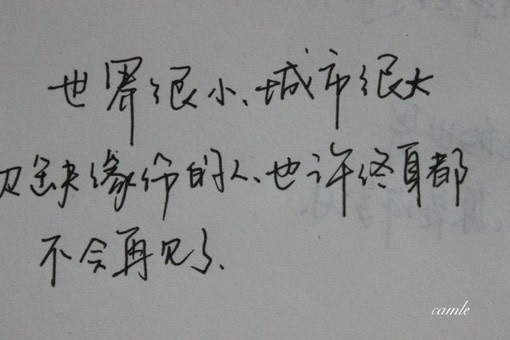 世界很小、城市很大
没缘份的人、也许终身都
不会再见了、
camle